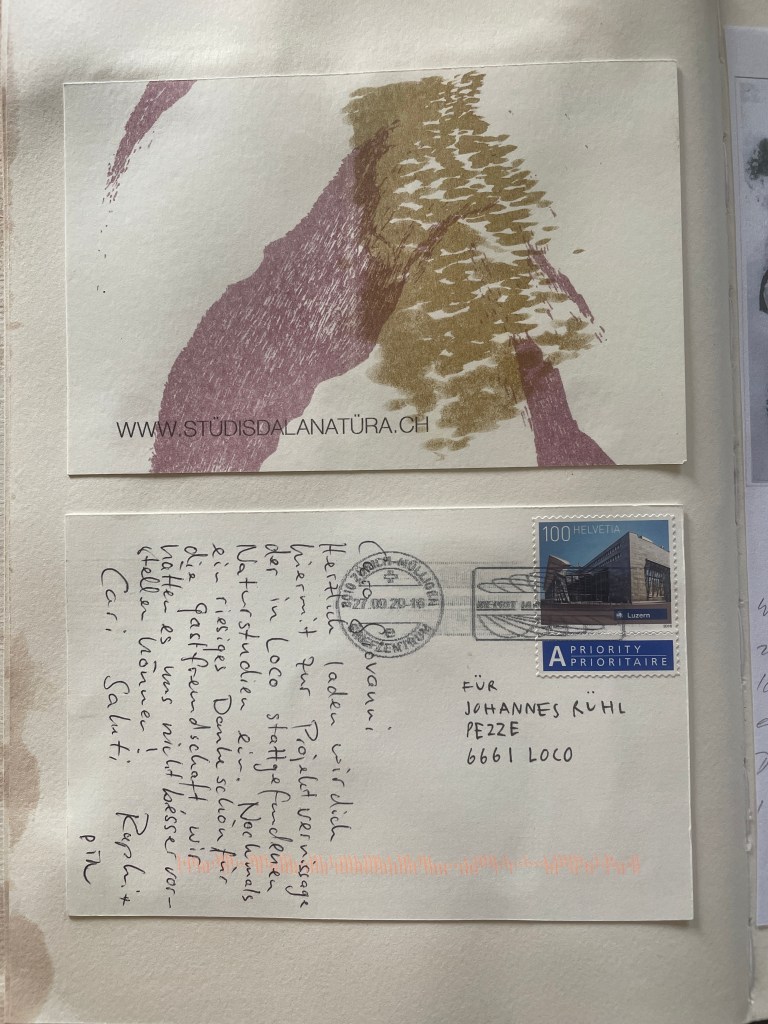 WWW.STÜDISDALANATÜRA.CH
100 HELVETIA
Luzern
A PRIORITY
PRIORITAIRE
8010 ZÜRICH-MÜLLIGEN
27.09.20-16
BRIEFZENTRUM
FÜR
JOHANNES RÜHL
PEZZE
6661 LOCO
Herzlich laden wir dich
hiermit zur Projektvernissage
der in Loco stattgefundenen
Naturstudien ein. Nochmals
ein riesiges Dankeschön für
die Gastfreundschaft wir
hätten es uns nicht besser vor-
stellen können!
Cari Saluti Raphi +